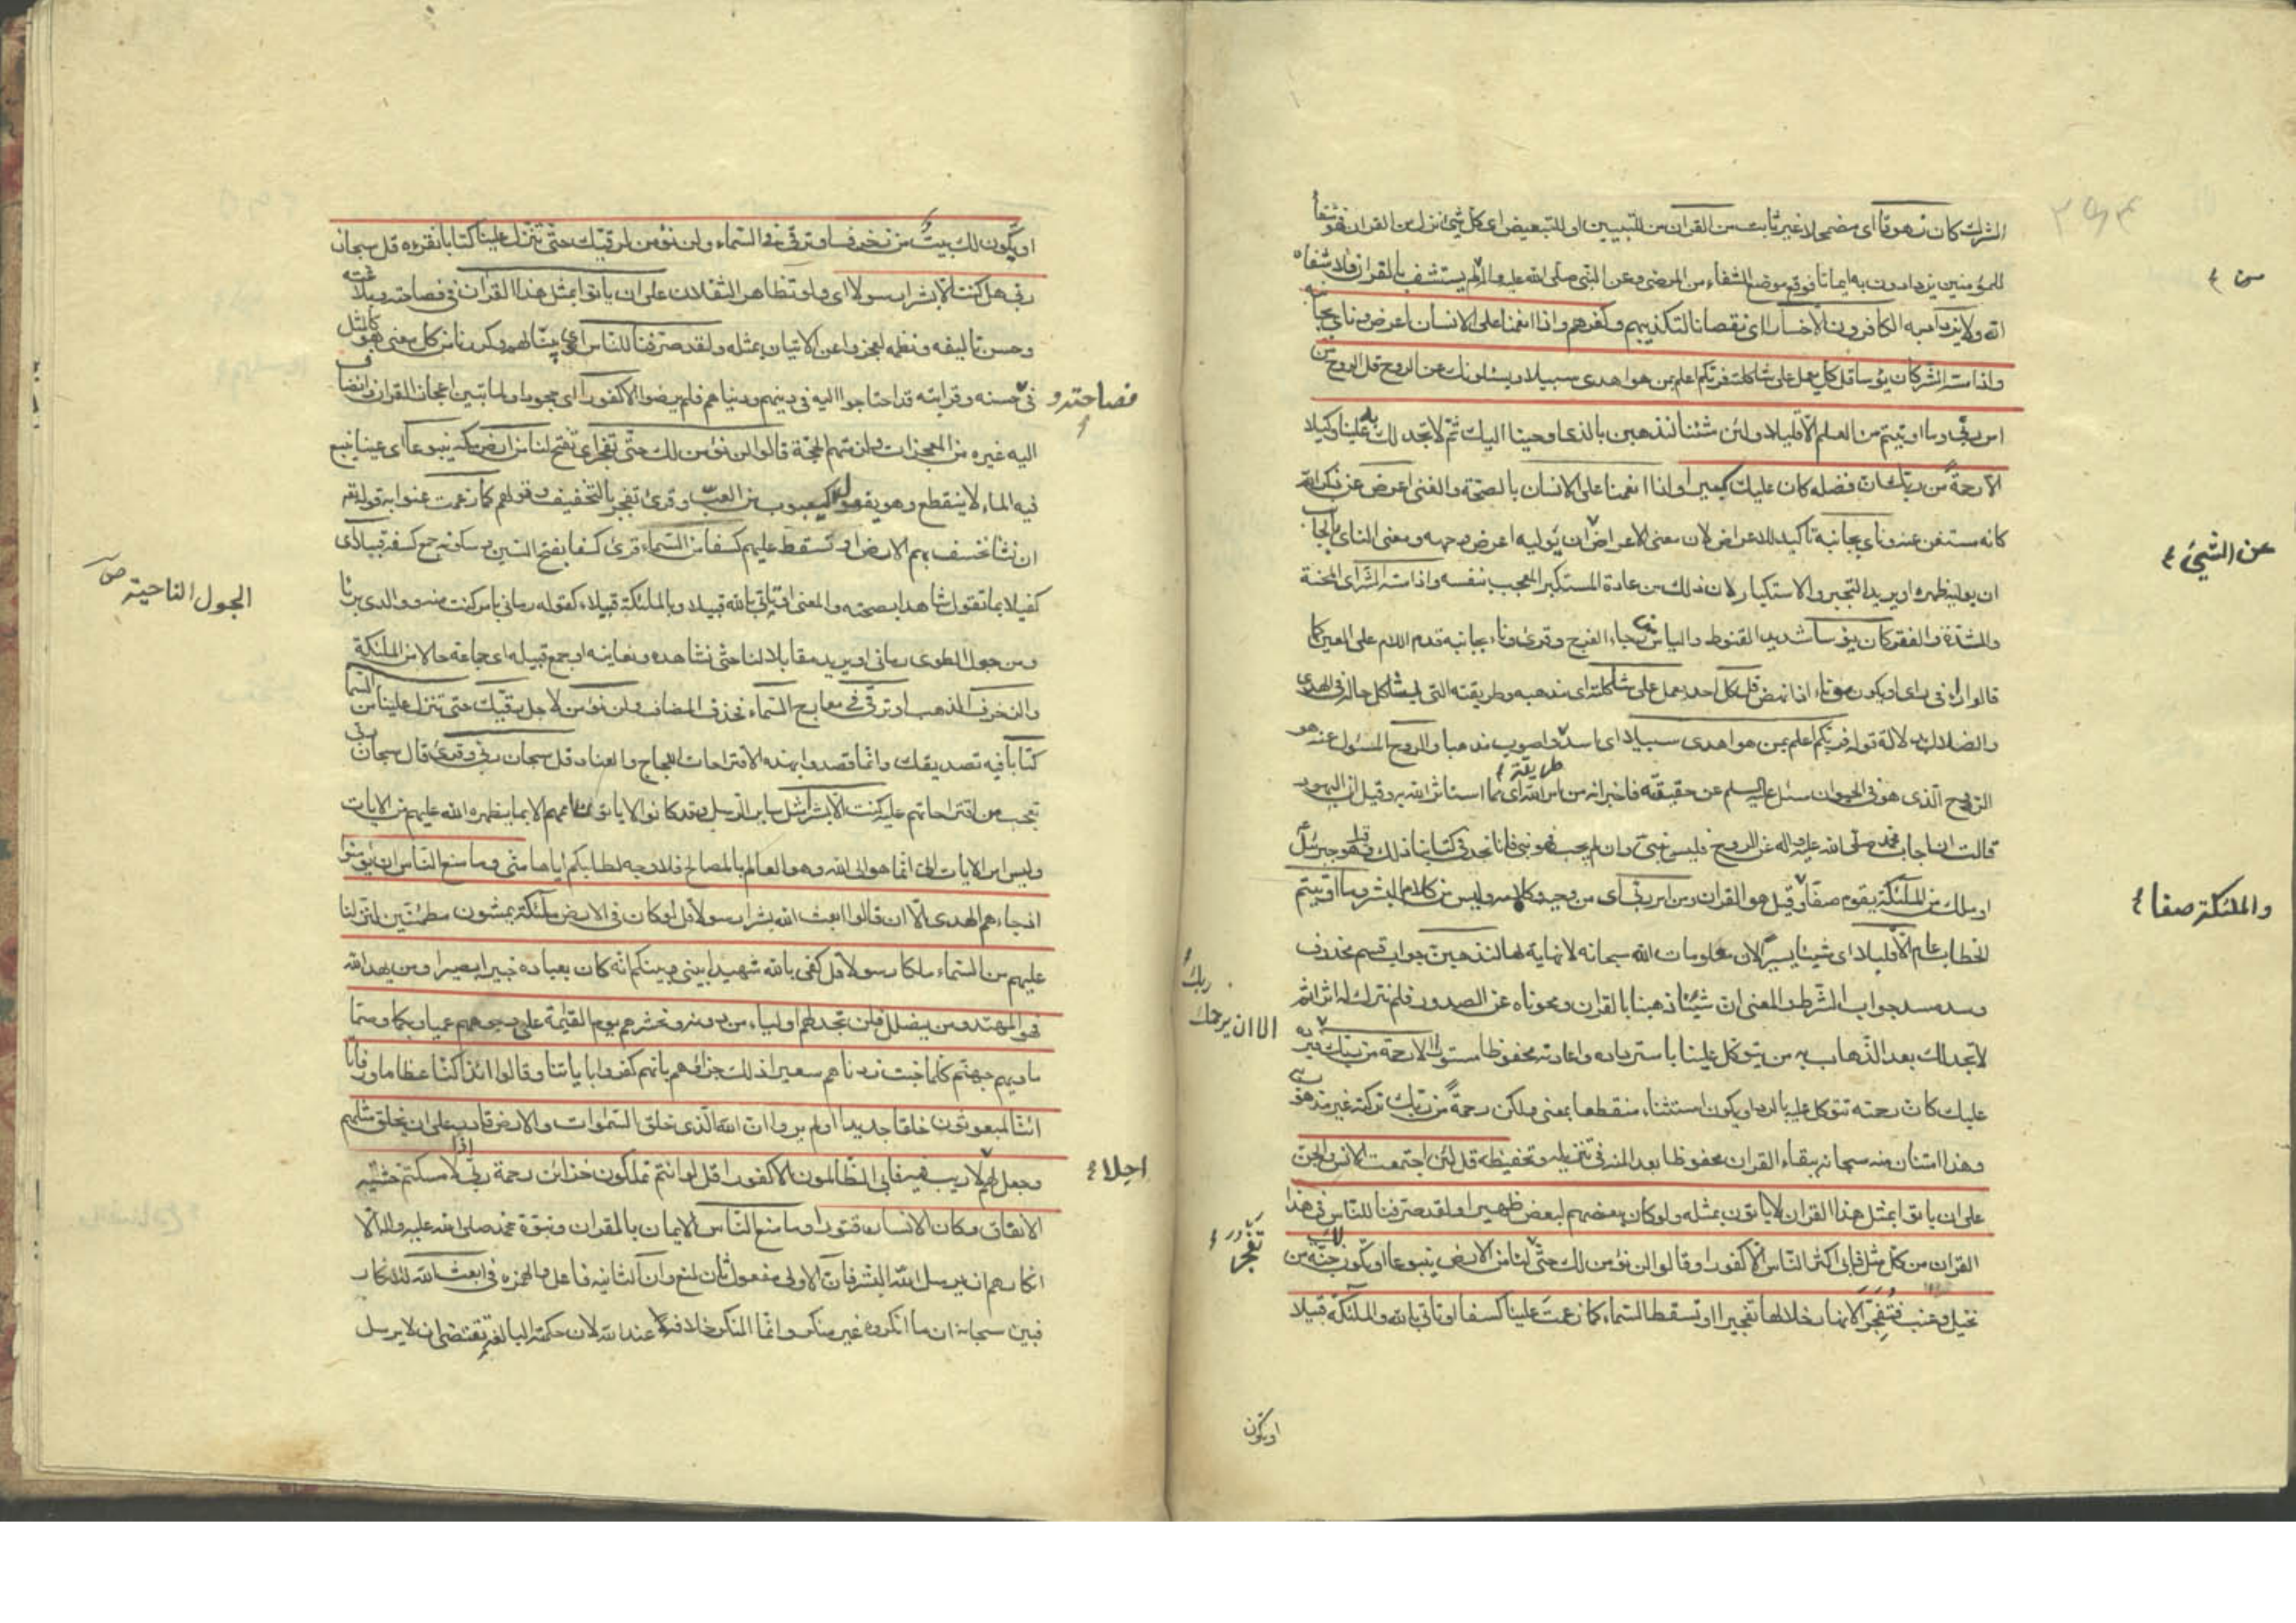 الشرك كان زهوقا اى مضمحلا غير ثابت من القران من للتبيين او للتبعيض اى كل شئ نزل من القران فهو شفاء
للمؤمنين يزدادون به ايمانا فوقع موضع الشفاء من المرضى وعن النبى صلى الله عليه واله من لم يستشف بالقران فلا شفاه
الله ولا يزداد به الكافرون الا خسارا اى نقصانا لتكذيبهم وكفرهم واذا انعمنا على الانسان اعرض وناى بجانبه
واذا مسه الشر كان يؤسا قل كل يعمل على شاكلته فربكم اعلم بمن هو اهدى سبيلا ويسئلونك عن الروح قل الروح من
امر ربى وما اوتيتم من العلم الا قليلا ولئن شئنا لنذهبن بالذى اوحينا اليك ثم لا تجد لك به علينا وكيلا
الا رحمة من ربك ان فضله كان عليك كبيرا واذا انعمنا على الانسان بالصحة والغنى اعرض عن ذكر الله
كانه مستغن عنه وناى بجانبه تاكيد للاعراض لان معنى الاعراض ان يوليه اعرض وجهه ومعنى الناى بالجانب
ان يوليه ظهره او يريد التجبر والاستكبار لان ذلك من عادة المستكبر المعجب بنفسه واذا مسه الشر اى المحنة
والشدة والفقر كان يؤسا شديد القنوط والياس رجاء الفرج وقرئ وناء بجانبه قدم اللام على العين كما
قالوا راء فى راى او يكون من ناء اذا نهض قل كل احد يعمل على شاكلته اى مذهبه وطريقته التى يشاكل حاله فى الهدى
والضلال بدلالة قوله فربكم اعلم بمن هو اهدى سبيلا اى اسد واصوب مذهبا والروح المسئول عنه هو
طريقة
الروح الذى هو فى الحيوان سئل عليه السلم عن حقيقته فاخبر انه من امر الله اى مما استاثر الله به وقيل ان اليهود
قالت ان اجاب محمد صلى الله عليه واله عن الروح فليس بنبى وان لم يجب فهو نبى فانا نجد فى كتابنا ذلك وقيل هو جبرئيل
او ملك من الملئكة يقوم صفا وقيل هو القران ومن امر ربى اى من وحيه وكلامه وليس من كلام البشر وما اوتيتم
الخطاب عام الا قليلا اى شيئا يسيرا لان معلومات الله سبحانه لا نهاية لها لنذهبن جواب قسم محذوف
وسد مسد جواب الشرط والمعنى ان شئنا ذهبنا بالقران ومحوناه عن الصدور فلم نترك له اثرا ثم
لا تجد لك بعد الذهاب به من يتوكل علينا باسترداده واعادته محفوظا مستورا الا رحمة من ربك يرده
عليك كان رحمته تتوكل عليه بالرد او يكون استثناء منقطعا بمعنى ولكن رحمة من ربك تركته غير مذهوب
وهذا امتنان منه سبحانه ببقاء القران محفوظا بعد المنة فى تنزيله وتحفيظه قل لئن اجتمعت الانس والجن
على ان ياتوا بمثل هذا القران لا ياتون بمثله ولو كان بعضهم لبعض ظهيرا ولقد صرفنا للناس فى هذا
القران من كل مثل فابى اكثر الناس الا كفورا وقالوا لن نؤمن لك حتى لنا من الارض ينبوعا او يكون لك جنة من
نخيل وعنب فتفجر الانهار خلالها تفجيرا او تسقط السماء كما زعمت علينا كسفا او تاتى بالله والملئكة قبيلا
من
عن الشئ
والملئكة صفا
ربك
الا ان يرحمك
تفجر
او يكون
او يكون لك بيت من زخرف او ترقى فى السماء ولن نؤمن لرقيك حتى تنزل علينا كتابا نقرءه قل سبحان
ربى هل كنت الا بشرا رسولا اى ولو تظاهر الثقلان على ان ياتوا بمثل هذا القران فى فصاحته وبلاغته
وحسن تاليفه ونظمه لعجزوا عن الاتيان بمثله ولقد صرفنا للناس اى بينا لهم وكررنا من كل معنى هو كالمثل
فى حسنه وقد احتاجوا اليه فى دينهم ودنياهم فلم يرضوا الا كفورا اى جحودا ولما تبين اعجاز القران وانضاف
اليه غيره من المعجزات ولزمتهم الحجة قالوا لن نؤمن لك حتى تفجر اى تفتح لنا من ارض مكة ينبوعا اى عينا ينبع
فيه الماء لا ينقطع وهو يفعول كيعبوب من العب وقرئ تفجر بالتخفيف وقولهم كما زعمت عنوا به قوله تعالى
ان نشا نخسف بهم الارض او نسقط عليهم كسفا من السماء قرئ كسفا بفتح السين وسكونه جمع كسفة قبيلا اى
كفيلا بما تقول شاهدا بصحته والمعنى او تاتى بالله قبيلا وبالملئكة قبيلا كقوله رمانى بامر كنت منه ووالدى بريا
ومن جول الطوى رمانى او يريد مقابلا لنا حتى نشاهده ونعاينه او جمع قبيلة اى جماعة حالا من الملئكة
والزخرف الذهب او ترقى فى معارج السماء فحذف المضاف ولن نؤمن لاجل رقيك حتى تنزل علينا من السماء
كتابا فيه تصديقك وانما قصدوا بهذه الاقتراحات اللجاج والعناد قل سبحان ربى وقرئ قال سبحان ربى
تعجب من اقتراحاتهم عليه هل كنت الا بشرا مثل ساير الرسل وقد كانوا لا ياتون اممهم الا بما يظهره الله عليهم من الايات
وليس امر الايات الى انما هو الى الله وهو العالم بالمصالح فلا وجه لطلبكم اياها منى وما منع الناس ان يؤمنوا
اذ جاءهم الهدى الا ان قالوا ابعث الله بشرا رسولا قل لو كان فى الارض ملئكة يمشون مطمئنين لنزلنا
عليهم من السماء ملكا رسولا قل كفى بالله شهيدا بينى وبينكم انه كان بعباده خبيرا بصيرا ومن يهد الله
فهو المهتد ومن يضلل فلن تجد لهم اولياء من دونه ونحشرهم يوم القيمة على وجوههم عميا وبكما وصما
ماويهم جهنم كلما خبت زدناهم سعيرا ذلك جزاؤهم بانهم كفروا باياتنا وقالوا ائذا كنا عظاما ورفاتا
ائنا لمبعوثون خلقا جديدا اولم يروا ان الله الذى خلق السموات والارض قادر على ان يخلق مثلهم
وجعل لهم لا ريب فيه فابى الظالمون الا كفورا قل لو انتم تملكون خزائن رحمة ربى اذا لامسكتم خشية
الانفاق وكان الانسان قتورا وما منع الناس الايمان بالقران ونبوة محمد صلى الله عليه واله الا
انكارهم ان يرسل الله البشر فان الاولى مفعول ثان لمنع وان الثانية فاعل والهمزة فى ابعث الله للانكار
فبين سبحانه ان ما انكروه غير منكر وانما المنكر خلافه عند الله لان حكمته البالغة تقتضى ان لا يرسل
فصاحته و
الجول الناحية ص
اجلا